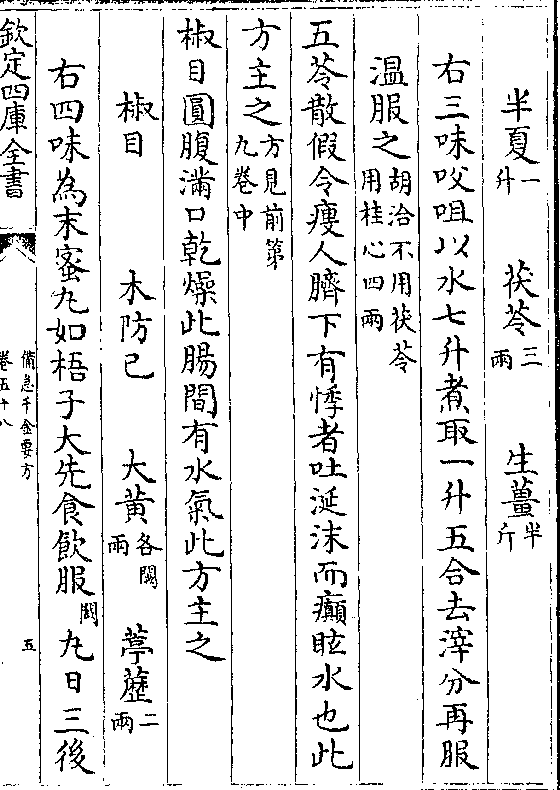 半夏一升 茯苓三兩 生薑半斤
右三味㕮咀以水七升煮取一升五合去滓分再服
温服之胡洽不用茯苓用桂心四兩
五苓散假令瘦人臍下有悸者吐涎沫而癲眩水也此
方主之方見前第九卷中
椒目圓腹滿口乾燥此腸間有水氣此方主之
椒目 木防已 大黄各闕兩 葶藶二兩
右四味為末蜜丸如梧子大先食飲服闕丸日三後
欽定四庫全書 備急千金要方 卷五十八 五